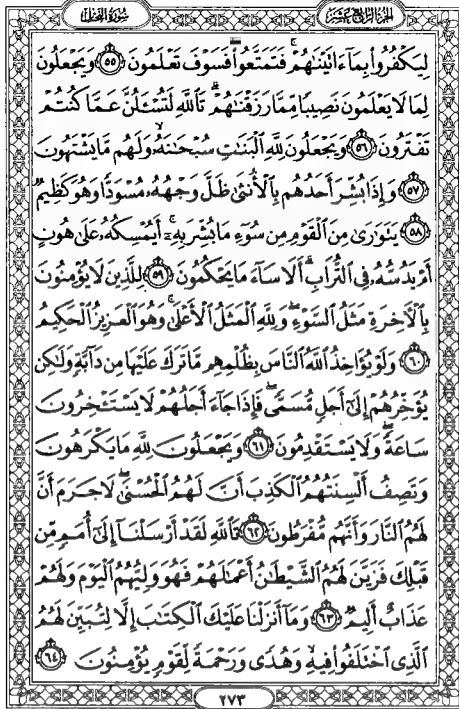 سُورَةُ النَّحْلِ الجُزْءُ الرَّابِعُ عَشَرَ
لِيَكْفُرُوا۟ بِمَآ ءَاتَيْنَٰهُمْ ۚ فَتَمَتَّعُوا۟ فَسَوْفَ تَعْلَمُونَ ﴿٥٥﴾ وَيَجْعَلُونَ
لِمَا لَا يَعْلَمُونَ نَصِيبًا مِّمَّا رَزَقْنَٰهُمْ ۗ تَٱللَّهِ لَتُسْـَٔلُنَّ عَمَّا كُنتُمْ
تَفْتَرُونَ ﴿٥٦﴾ وَيَجْعَلُونَ لِلَّهِ ٱلْبَنَٰتِ سُبْحَٰنَهُۥ ۙ وَلَهُم مَّا يَشْتَهُونَ
﴿٥٧﴾ وَإِذَا بُشِّرَ أَحَدُهُم بِٱلْأُنثَىٰ ظَلَّ وَجْهُهُۥ مُسْوَدًّا وَهُوَ كَظِيمٌ
﴿٥٨﴾ يَتَوَٰرَىٰ مِنَ ٱلْقَوْمِ مِن سُوٓءِ مَا بُشِّرَ بِهِۦٓ ۚ أَيُمْسِكُهُۥ عَلَىٰ هُونٍ
أَمْ يَدُسُّهُۥ فِى ٱلتُّرَابِ ۗ أَلَا سَآءَ مَا يَحْكُمُونَ ﴿٥٩﴾ لِلَّذِينَ لَا يُؤْمِنُونَ
بِٱلْأَخِرَةِ مَثَلُ ٱلسَّوْءِ ۖ وَلِلَّهِ ٱلْمَثَلُ ٱلْأَعْلَىٰ ۚ وَهُوَ ٱلْعَزِيزُ ٱلْحَكِيمُ
﴿٦٠﴾ وَلَوْ يُؤَاخِذُ ٱللَّهُ ٱلنَّاسَ بِظُلْمِهِم مَّا تَرَكَ عَلَيْهَا مِن دَآبَّةٍ وَلَٰكِن
يُؤَخِّرُهُمْ إِلَىٰٓ أَجَلٍ مُّسَمًّى ۖ فَإِذَا جَآءَ أَجَلُهُمْ لَا يَسْتَـْٔخِرُونَ
سَاعَةً ۖ وَلَا يَسْتَقْدِمُونَ ﴿٦١﴾ وَيَجْعَلُونَ لِلَّهِ مَا يَكْرَهُونَ
وَتَصِفُ أَلْسِنَتُهُمُ ٱلْكَذِبَ أَنَّ لَهُمُ ٱلْحُسْنَىٰ ۖ لَا جَرَمَ أَنَّ
لَهُمُ ٱلنَّارَ وَأَنَّهُم مُّفْرَطُونَ ﴿٦٢﴾ تَٱللَّهِ لَقَدْ أَرْسَلْنَآ إِلَىٰٓ أُمَمٍ مِّن
قَبْلِكَ فَزَيَّنَ لَهُمُ ٱلشَّيْطَٰنُ أَعْمَٰلَهُمْ فَهُوَ وَلِيُّهُمُ ٱلْيَوْمَ وَلَهُمْ
عَذَابٌ أَلِيمٌ ﴿٦٣﴾ وَمَآ أَنزَلْنَا عَلَيْكَ ٱلْكِتَٰبَ إِلَّا لِتُبَيِّنَ لَهُمُ
ٱلَّذِى ٱخْتَلَفُوا۟ فِيهِ ۙ وَهُدًى وَرَحْمَةً لِّقَوْمٍ يُؤْمِنُونَ ﴿٦٤﴾
٢٧٣